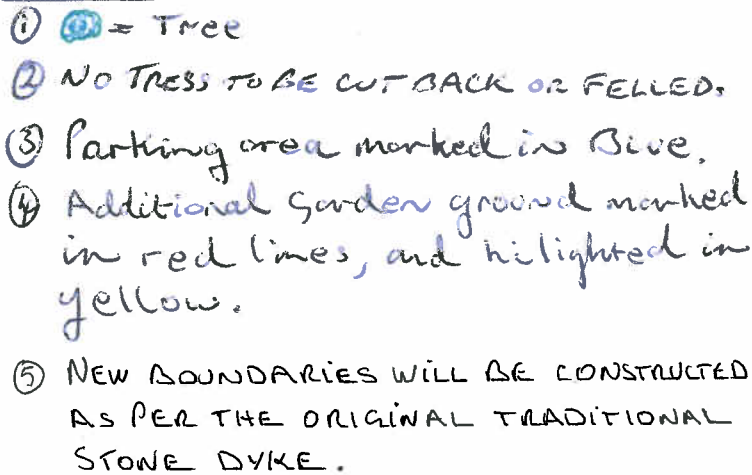 ① = Tree
② NO TRESS TO BE CUT BACK OR FELLED.
③ Parking area marked in Blue.
④ Additional Garden ground marked
in red lines, and hilighted in
yellow.
⑤ NEW BOUNDARIES WILL BE CONSTRUCTED
AS PER THE ORIGINAL TRADITIONAL
STONE DYKE.